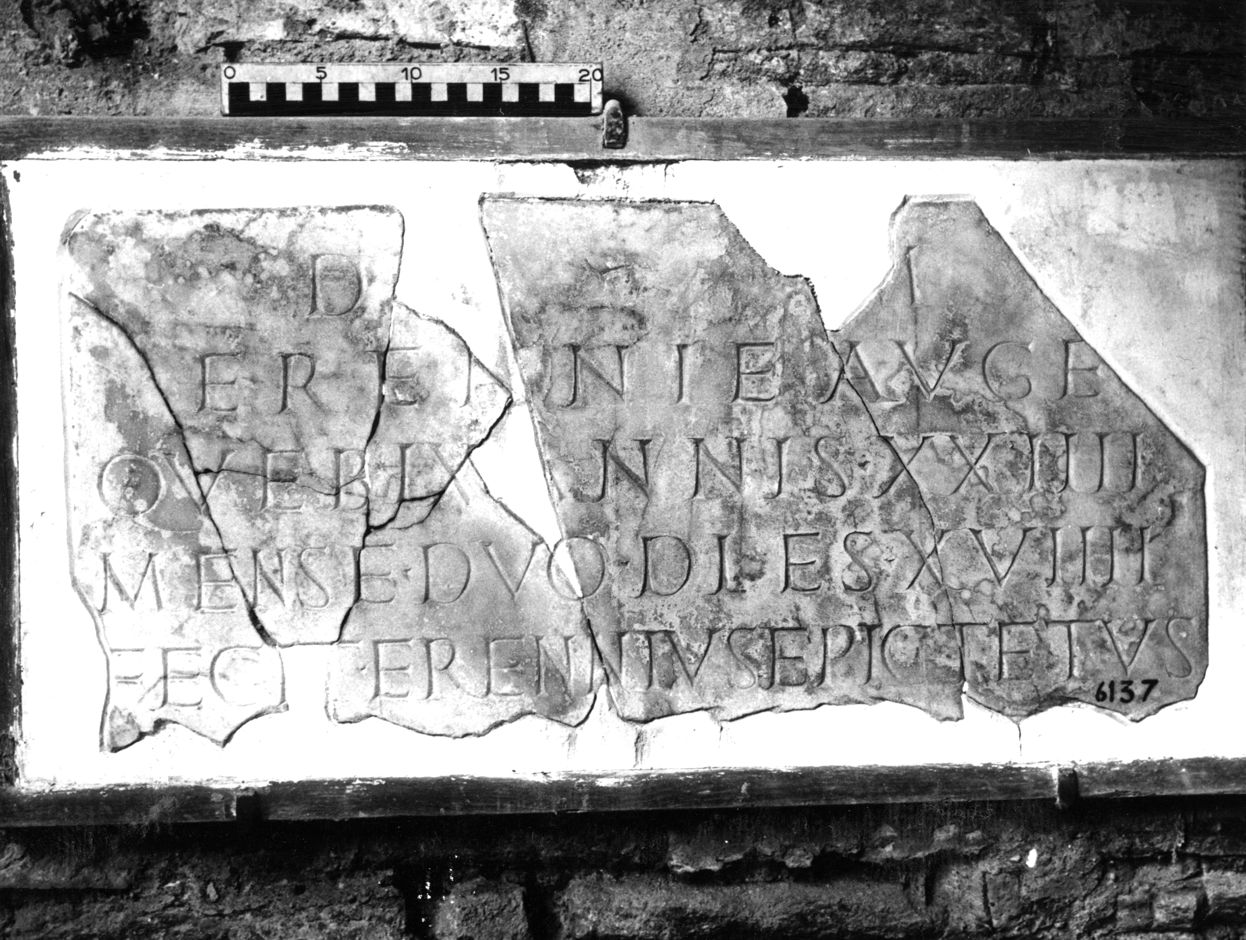 0 5 10 15 20
D
ERENNIE AVGE
QVE BIX NNIS XXIIII
MENSE·DVO·DIES XVIIII
FECIT ERENNIVS EPICTETVS
6137